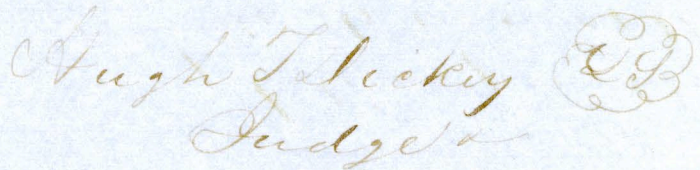 Hugh T Dickey
Judge &